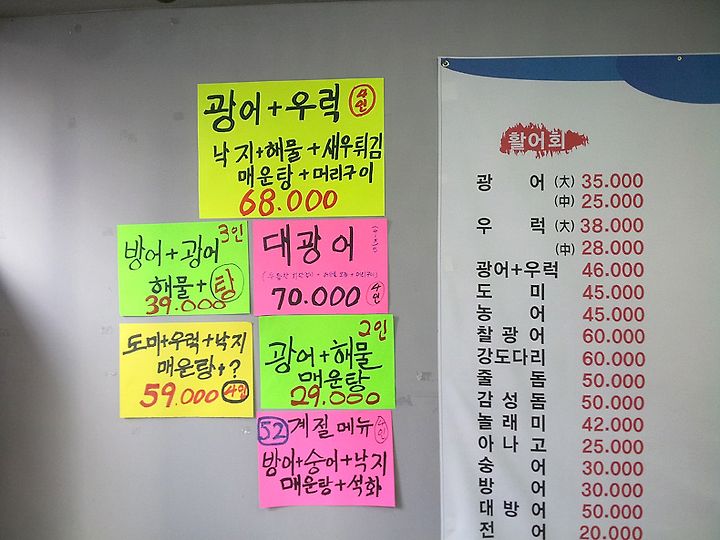 광어+우럭 4인
낙지+해물+새우튀김
매운탕+머리구이
68.000
3인
방어+광어
해물+탕
39.000
대광어
70.000 4인
도미+우럭+낙지
매운탕+?
59.000 4인
2인
광어+해물
매운탕
29.000
52 계절메뉴 4인
방어+숭어+낙지
매운탕+석화
활어회
광 어 (大) 35.000
(中) 25.000
우 럭 (大) 38.000
(中) 28.000
광어+우럭 46.000
도 미 45.000
농 어 45.000
찰광어 60.000
강도다리 60.000
줄 돔 50.000
감성돔 50.000
놀래미 42.000
아나고 25.000
숭 어 30.000
방 어 30.000
대방어 50.000
전 어 20.000